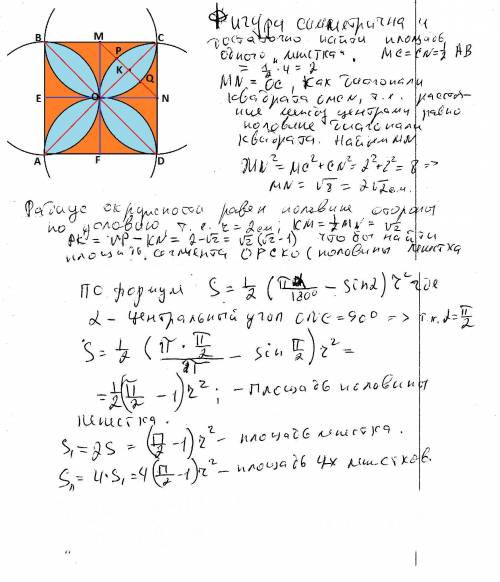 B M C
P
K
Q
E O N
A F D
Фигура симметрична и
достаточно найти площадь
одного "лепстка". MC=CN=½ AB
= ½·4=2
MN=OC, как диагонали
квадрата OMCN, т.е. расстоя-
ние между центрами равно
половине диагонали
квадрата. Найдем MN
MN² = MC²+CN² = 2²+2² = 8 =>
MN = √8 = 2√2 см.
Радиус окружности равен половине стороны
по условию т.е. r = 2см; KM = ½MN = √2
PK = NP - KN = 2-√2 = √2(√2-1) что бы найти
площадь сегмента OPCKO (половины лепстка
по формул S = ½ (πα/180° - sinα) r² где
α - центральный угол ONC = 90° => т.к. α = π/2
S = ½ (π · π/2 / π - sin π/2) r² =
= ½(π/2 - 1) r² ; - площадь половины
лепстка.
S₁ = 2S = (π/2 - 1) r² - площадь лепстка.
Sл = 4·S₁ = 4(π/2 - 1) r² - площадь 4х лепстков.